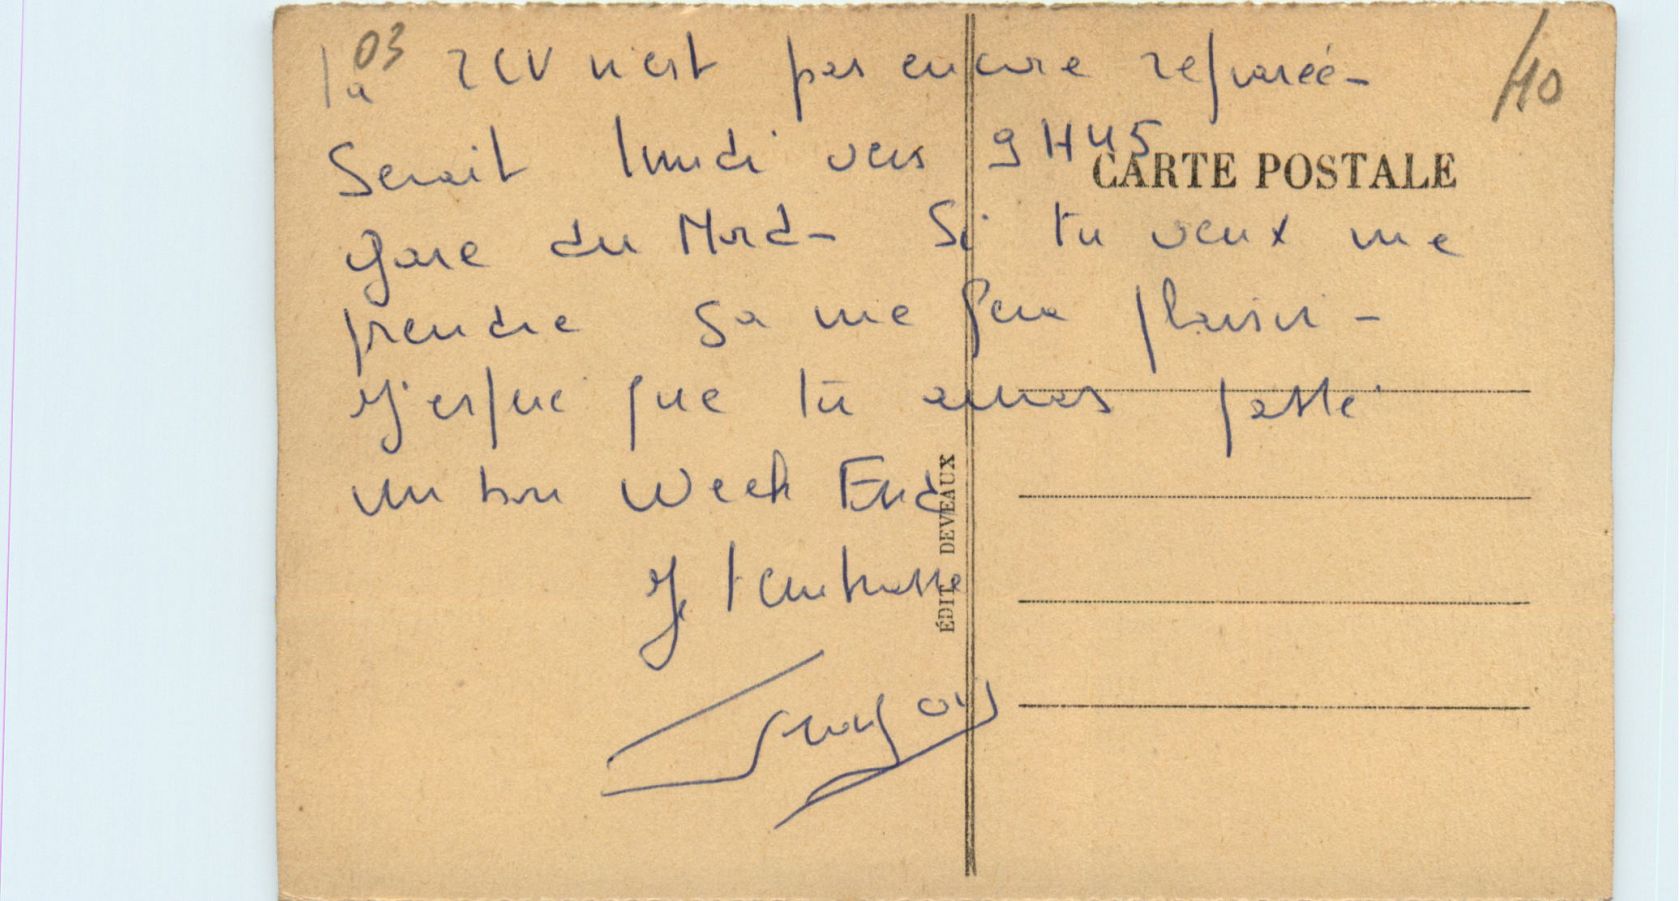 03
/40
la 2CV n'est pas encore reparéé-
Serait lundi vers 9H45
CARTE POSTALE
gare du Nord- Si tu veux me
prendre sa me fera plaisir-
J'espere que tu auras passé
un bon Week End
Je t'embrasse
François
ÉDIT. DEVEAUX